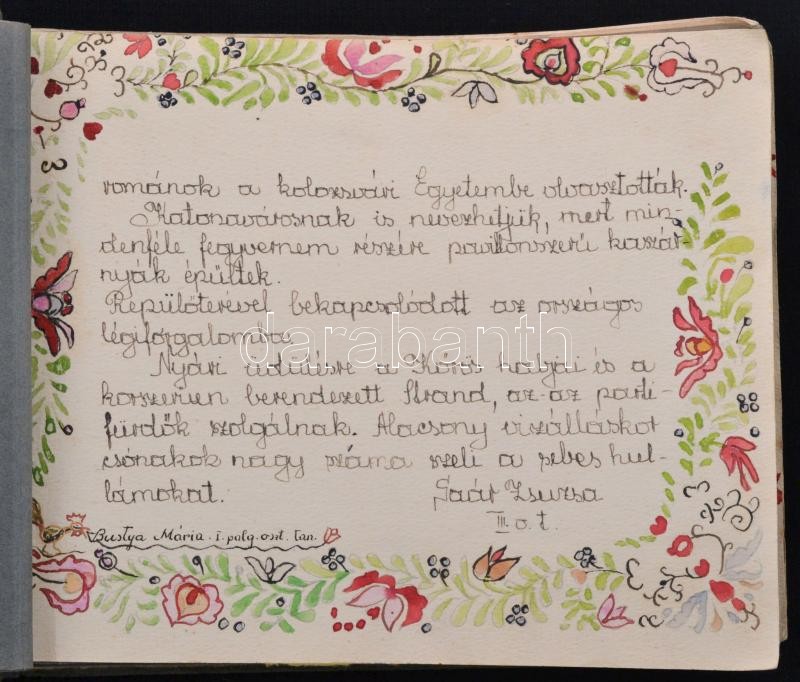 románok a kolozsvári Egyetembe olvasztották.
Katonavárosnak is nevezhetjük, mert min-
denféle fegyvernem részére pavillonszerű kaszár-
nyák épültek.
Repülőterével bekapcsolódott az országos
légiforgalomba.
Nyári üdülésre a Körös habjai és a
korszerűen berendezett Strand, az-az parti-
fürdők szolgálnak. Alacsony vizálláskor
csónakok nagy száma szeli a sebes hul-
lámokat. Gaár Zsuzsa
III. o. t.
Bustya Mária. I. polg. oszt. tan.
darabanth